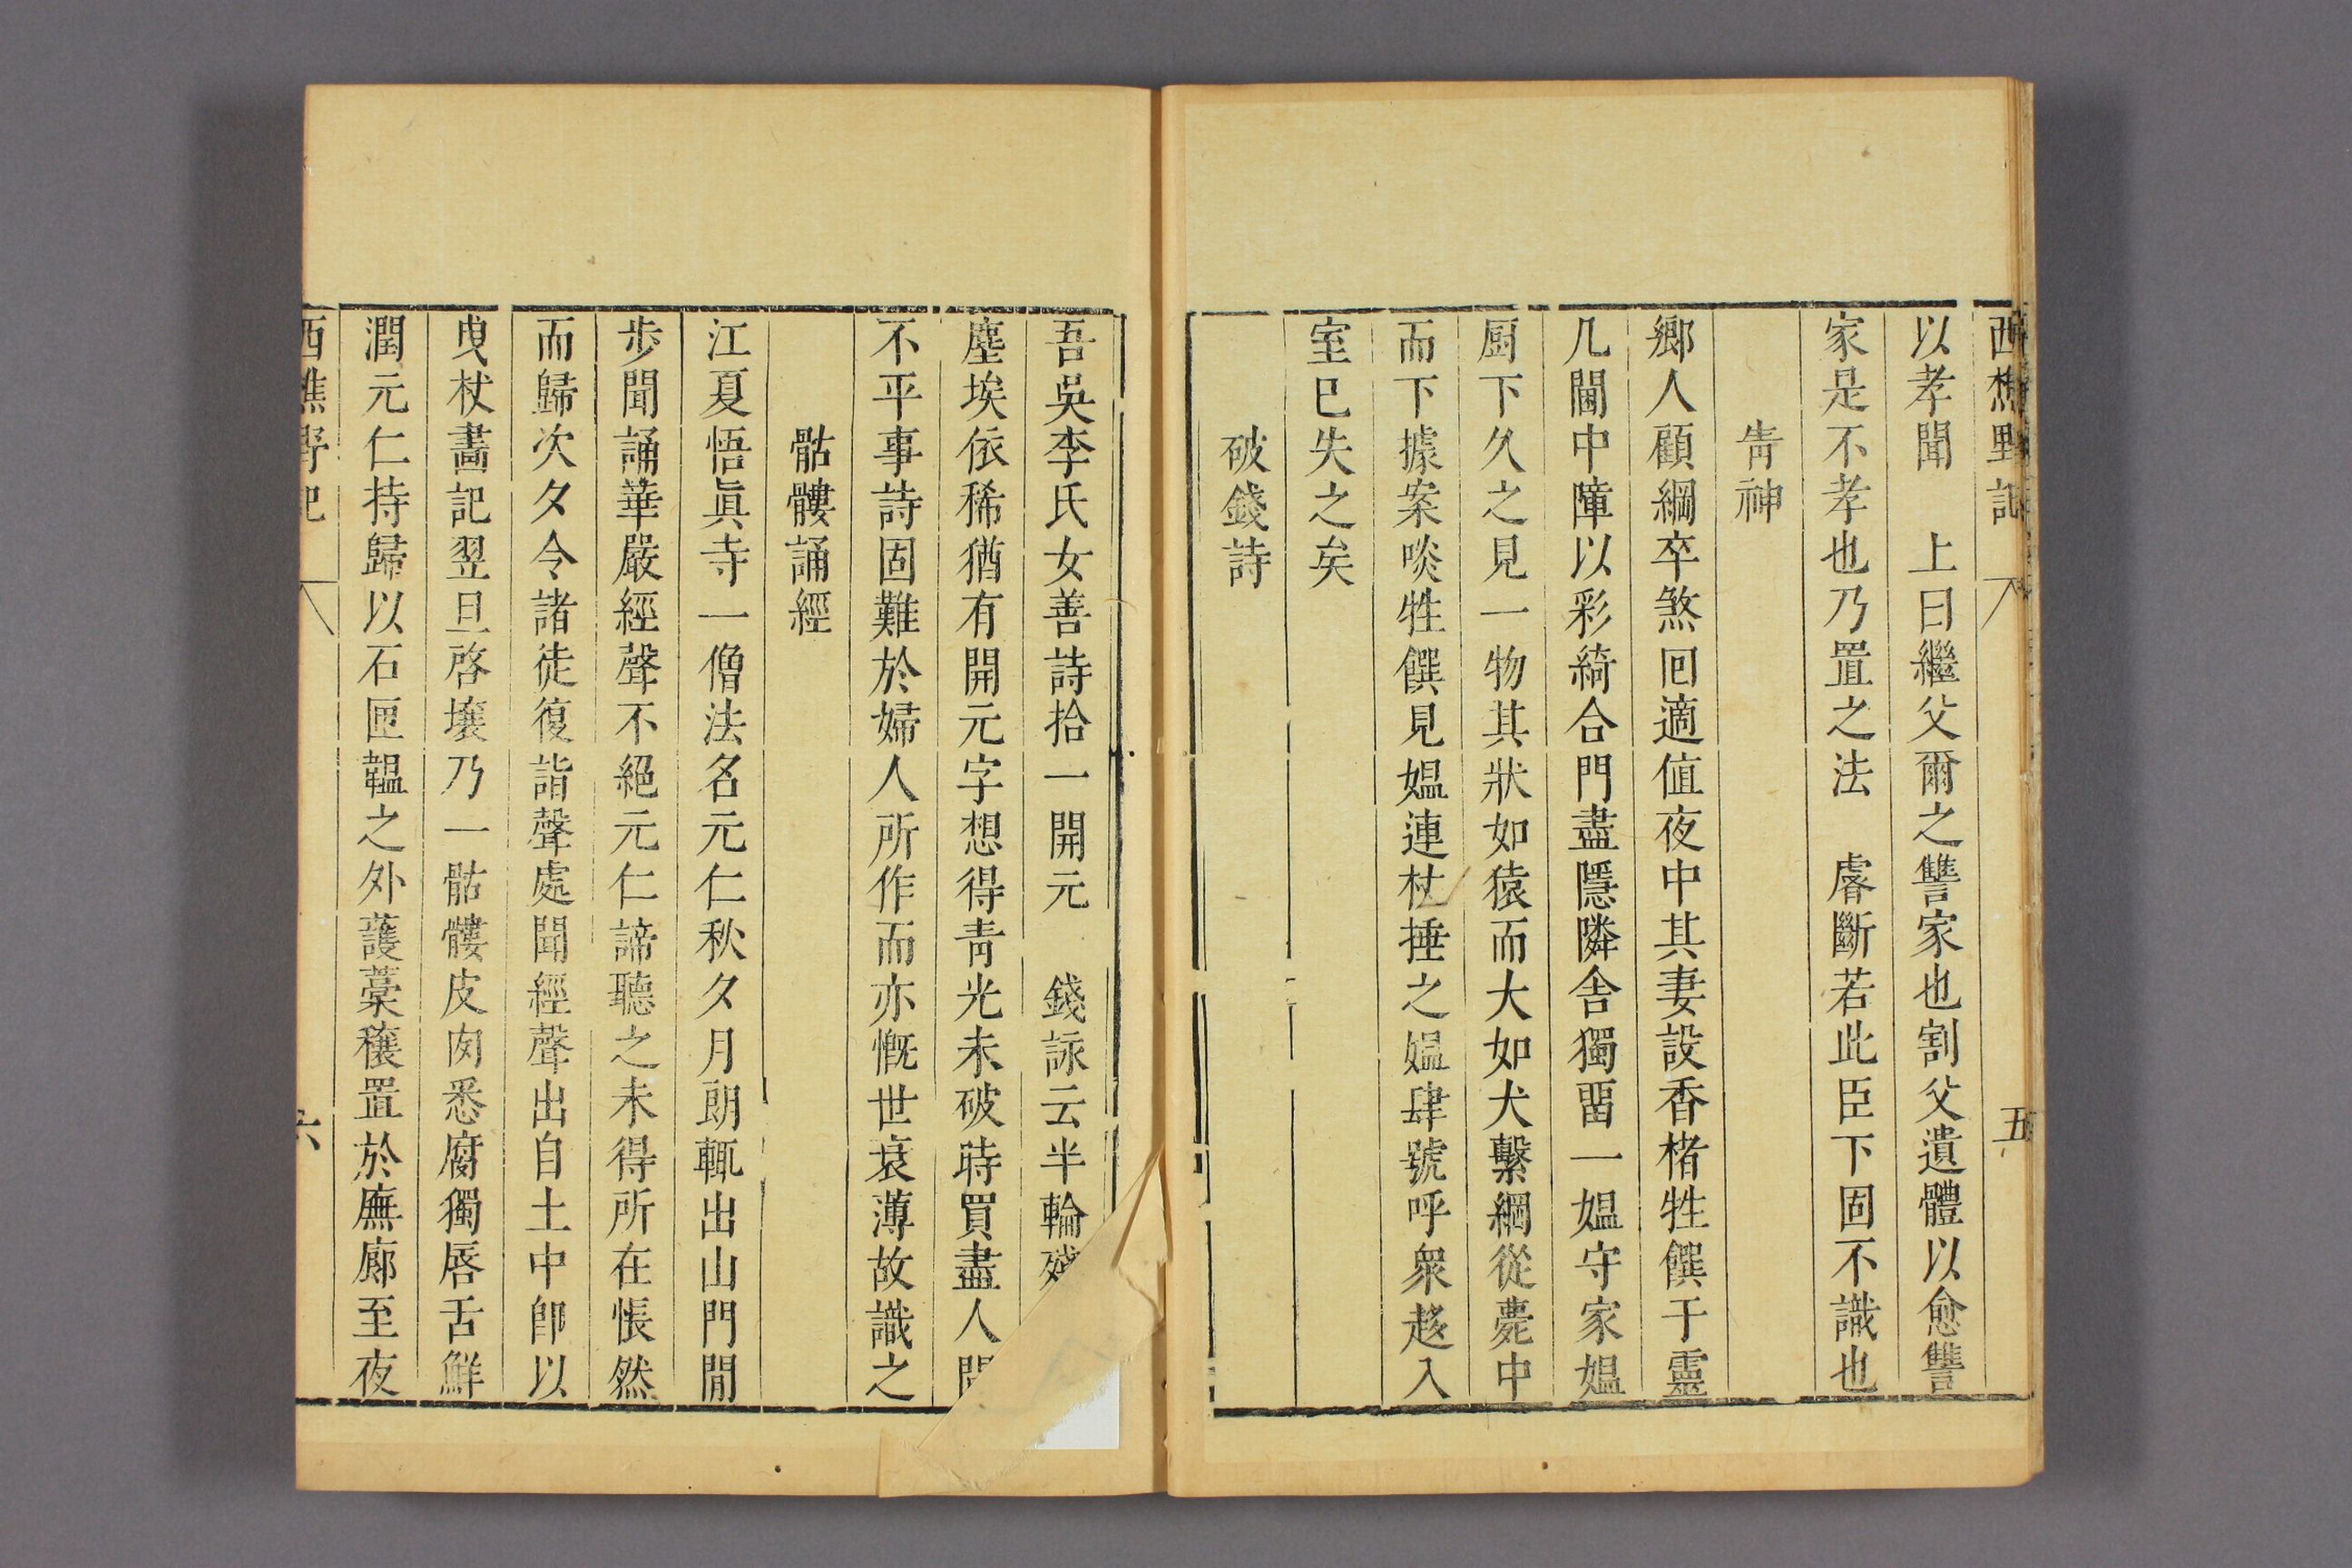 西樵野記 五
以孝聞　上曰繼父爾之讐家也割父遺體以愈讐
家是不孝也乃置之法　睿斷若此臣下固不識也
眚神
鄉人顧綱卒煞囘適值夜中其妻設香楮牲饌于靈
几閫中障以彩綺合門盡隱隣舍獨畱一媪守家媪
厨下久之見一物其狀如猿而大如犬繫綱從薨中
而下據案啖牲饌見媪連杖捶之媪肆號呼衆趍入
室已失之矣
破錢詩
吾吳李氏女善詩拾一開元　錢詠云半輪殘
塵埃依稀猶有開元字想得靑光未破時買盡人間
不平事詩固難於婦人所作而亦慨世衰薄故識之
骷髏誦經
江夏悟眞寺一僧法名元仁秋夕月朗輒出山門閒
步聞誦華嚴經聲不絕元仁諦聽之未得所在悵然
而歸次夕令諸徒復詣聲處聞經聲出自土中卽以
曳杖畵記翌旦啓壤乃一骷髏皮肉悉腐獨唇舌鮮
潤元仁持歸以石匣韞之外護藁穰置於廡廊至夜
西樵野記 六